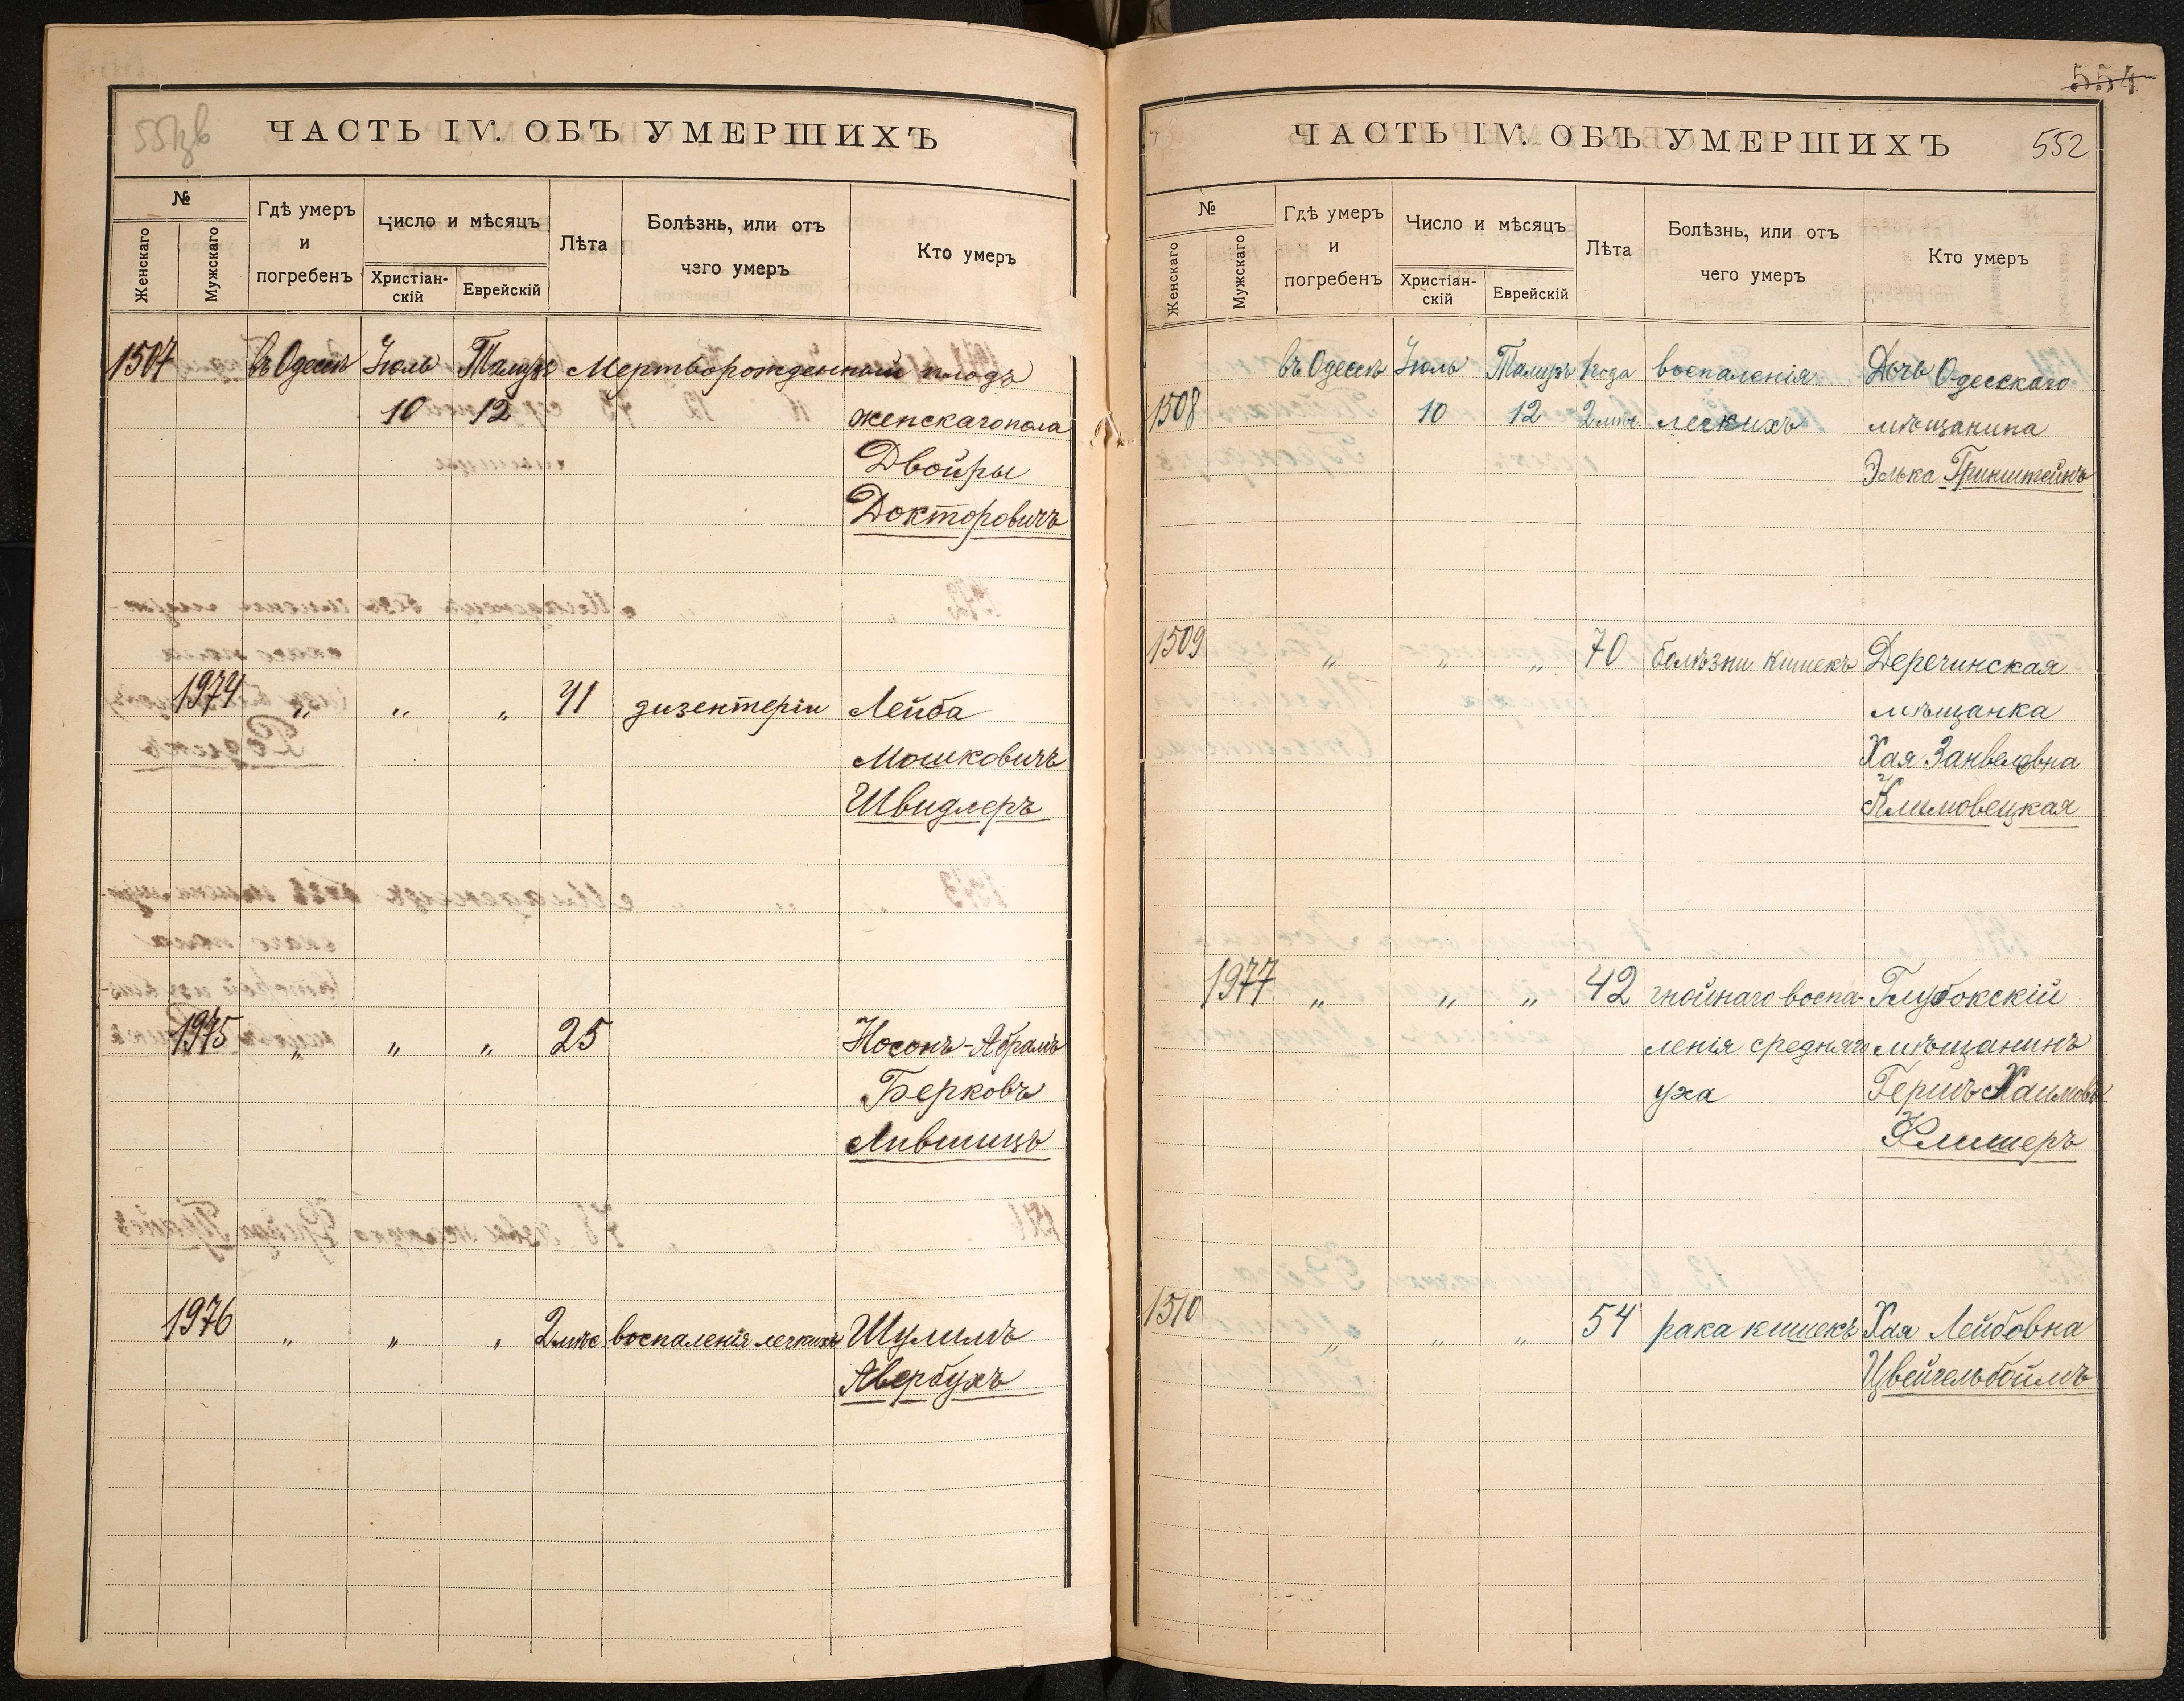 551 об
ЧАСТЬ IV. ОБЪ УМЕРШИХЪ
№
Женскаго
Мужскаго
Гдѣ умеръ
и
погребенъ
Число и мѣсяцъ
Христіан-
скій
Еврейскій
Лѣта
Болѣзнь, или отъ
чего умеръ
Кто умеръ
1507 въ Одессѣ Іюль Тамузъ Мертворожденный плодъ
10 12 женскаго пола
Двойры
Докторовичъ
1974 „ „ „ 41 дизентеріи Лейба
Мошковичъ
Швидлеръ
1975 „ „ „ 25 Носонъ-Абрамъ
Берковъ
Лившицъ
1976 „ „ „ 2 мѣс воспаленія легкихъ Шулимъ
Авербухъ
554
ЧАСТЬ IV. ОБЪ УМЕРШИХЪ
552
№
Женскаго
Мужскаго
Гдѣ умеръ
и
погребенъ
Число и мѣсяцъ
Христіан-
скій
Еврейскій
Лѣта
Болѣзнь, или отъ
чего умеръ
Кто умеръ
въ Одессѣ Іюль Тамузъ 1 года воспаленія Дочь Одесскаго
1508 10 12 2 мѣс. легкихъ мѣщанина
Элька Гринштейнъ
1509 „ „ „ 70 болѣзни кишекъ Деречинская
мѣщанка
Хая Занвеловна
Климовецкая
1977 „ „ „ 42 гнойнаго воспа- Глубокскій
ленія средняго мѣщанинъ
уха Гершъ Хаимовъ
Клишеръ
1510 „ „ „ 54 рака кишекъ Хая Лейбовна
Цвейгельбоймъ